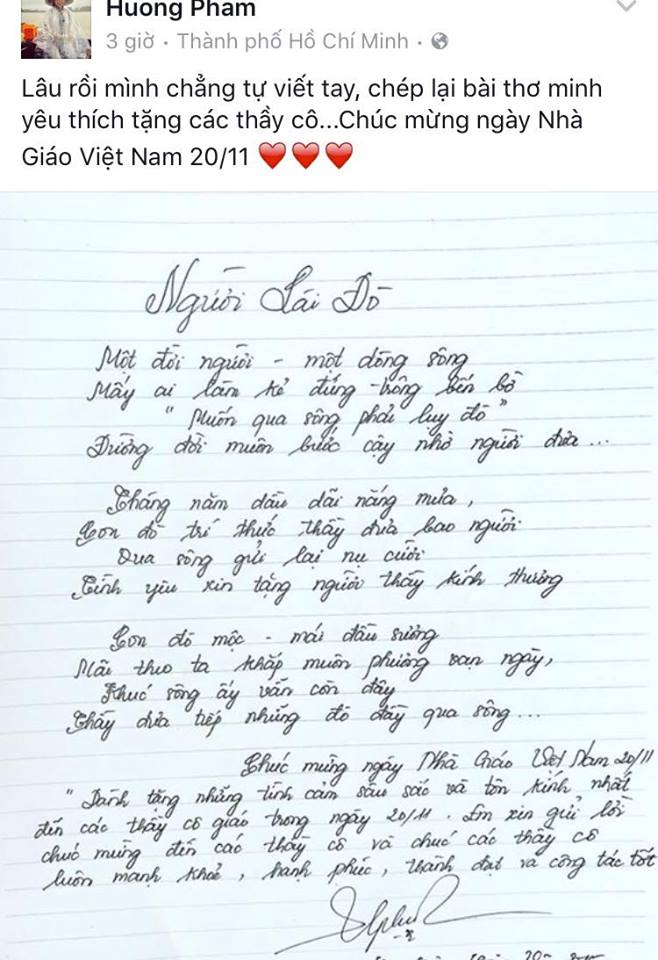 Huong Pham
3 giờ · Thành phố Hồ Chí Minh ·
Lâu rồi mình chẳng tự viết tay, chép lại bài thơ minh
yêu thích tặng các thầy cô...Chúc mừng ngày Nhà
Giáo Việt Nam 20/11
Người Lái Đò
Một đời người - một dòng sông
Mấy ai làm kẻ đứng trông bến bờ
" Muốn qua sông phải luy đò "
Đường đời muôn bước cậy nhờ người đưa ...
Tháng năm dầu dãi nắng mưa ,
Con đò trí thức thầy đưa bao người
Qua sông gửi lại nụ cười
Tình yêu xin tặng người thầy kính thương
Con đò mộc - mái đầu sương
Mãi theo ta khắp muôn phương vạn ngày,
Khúc sông ấy vẫn còn đây
Thầy đưa tiếp những đò đầy qua sông ...
Chúc mừng ngày Nhà Giáo Việt Nam 20/11
" Dành tặng những tình cảm sâu sắc và tôn kính nhất
đến các thầy cô giáo trong ngày 20/11 . Em xin gửi lời
chúc mừng đến các thầy cô và chúc các thầy cô
luôn mạnh khoẻ , hạnh phúc , thành đạt và công tác tốt